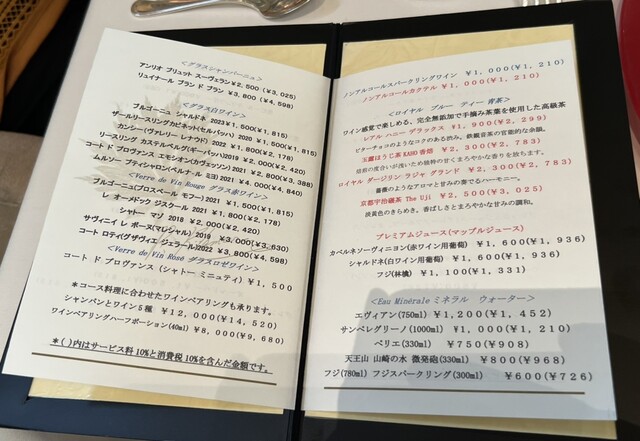 ＜グラスシャンパーニュ＞
アンリオ ブリュット スーヴェラン¥2,500（¥3,025）
リュイナール ブラン ド ブラン ¥3,800（¥4,598）
＜グラス白ワイン＞
ブルゴーニュ シャルドネ 2023¥1,500(¥1,815)
ザールリースリングカビネット(セルバッハ) 2020 ¥1,500(¥1,815)
カンシー(ヴァレリー レナウド) 2022 ¥1,800(¥2,178)
リースリング カステルベルグ(ギーバッハ)2019 ¥2,000(¥2,420)
コート ド プロヴァンス エモシオン(カヴェッソン) 2021 ¥2,800(¥3,388)
ムルソー プティシャロン(ベルナール ミヨ) 2021 ¥4,000(¥4,840)
＜Verre de Vin Rouge グラス赤ワイン＞
ブルゴーニュ(プロスペール モフー) 2021 ¥1,500(¥1,815)
レ オーメドック ジスクール 2021 ¥1,800(¥2,178)
シャトー マゾ 2018 ¥2,000(¥2,420)
サヴィニイ レ ボーヌ(マレシャル) 2019 ¥3,000(¥3,630)
コート ロティ(ザヴィエ ジェラール)2022 ¥3,800(¥4,598)
＜Verre de Vin Rosé グラスロゼワイン＞
コート ド プロヴァンス (シャトー ミニュティ) ¥1,500
＊コース料理に合わせたワインペアリングも承ります。
シャンパンとワイン５種 ¥12,000(¥14,520)
ワインペアリングハーフポーション(40ml) ¥8,000(¥9,680)
＊( )内はサービス料10%と消費税10%を含んだ金額です。
ノンアルコールスパークリングワイン ¥1,000(¥1,210)
ノンアルコールカクテル ¥1,000(¥1,210)
＜ロイヤル ブルー ティー 青茶＞
ワイン感覚で楽しめる、完全無添加で手摘み茶葉を使用した高級茶
レアル ハニー デラックス ¥1,900(¥2,299)
ビターチョコのようなコクのある渋み。鉄観音茶の官能的な余韻。
玉露ほうじ茶 KAHO香焙 ¥2,300(¥2,783)
焙煎の度合いが浅いため独特の甘くまろやかな香りを持ちます。
ロイヤル ダージリン ラジャ グランド ¥2,300(¥2,783)
薔薇のようなアロマと甘みの奏でるハーモニー。
京都宇治碾茶 The Uji ¥2,500(¥3,025)
淡黄色のきらめき。香ばしさとまろやかな甘みの調和。
プレミアムジュース(マップルジュース)
カベルネソーヴィニヨン(赤ワイン用葡萄) ¥1,600(¥1,936)
シャルドネ(白ワイン用葡萄) ¥1,600(¥1,936)
フジ(林檎) ¥1,100(¥1,331)
＜Eau Minérale ミネラル ウォーター＞
エヴィアン(750ml) ¥1,200(¥1,452)
サンペレグリーノ(1000ml) ¥1,000(¥1,210)
ペリエ(330ml) ¥750(¥908)
天王山 山崎の水 微発砲(330ml) ¥800(¥968)
フジ(780ml) フジスパークリング(300ml) ¥600(¥726)